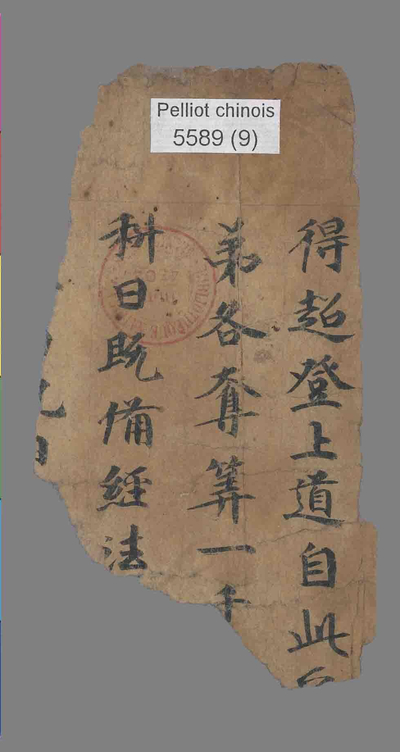 Pelliot chinois
5589 (9)
得超登上道自此
弟各奪筭一千
科曰既備經法